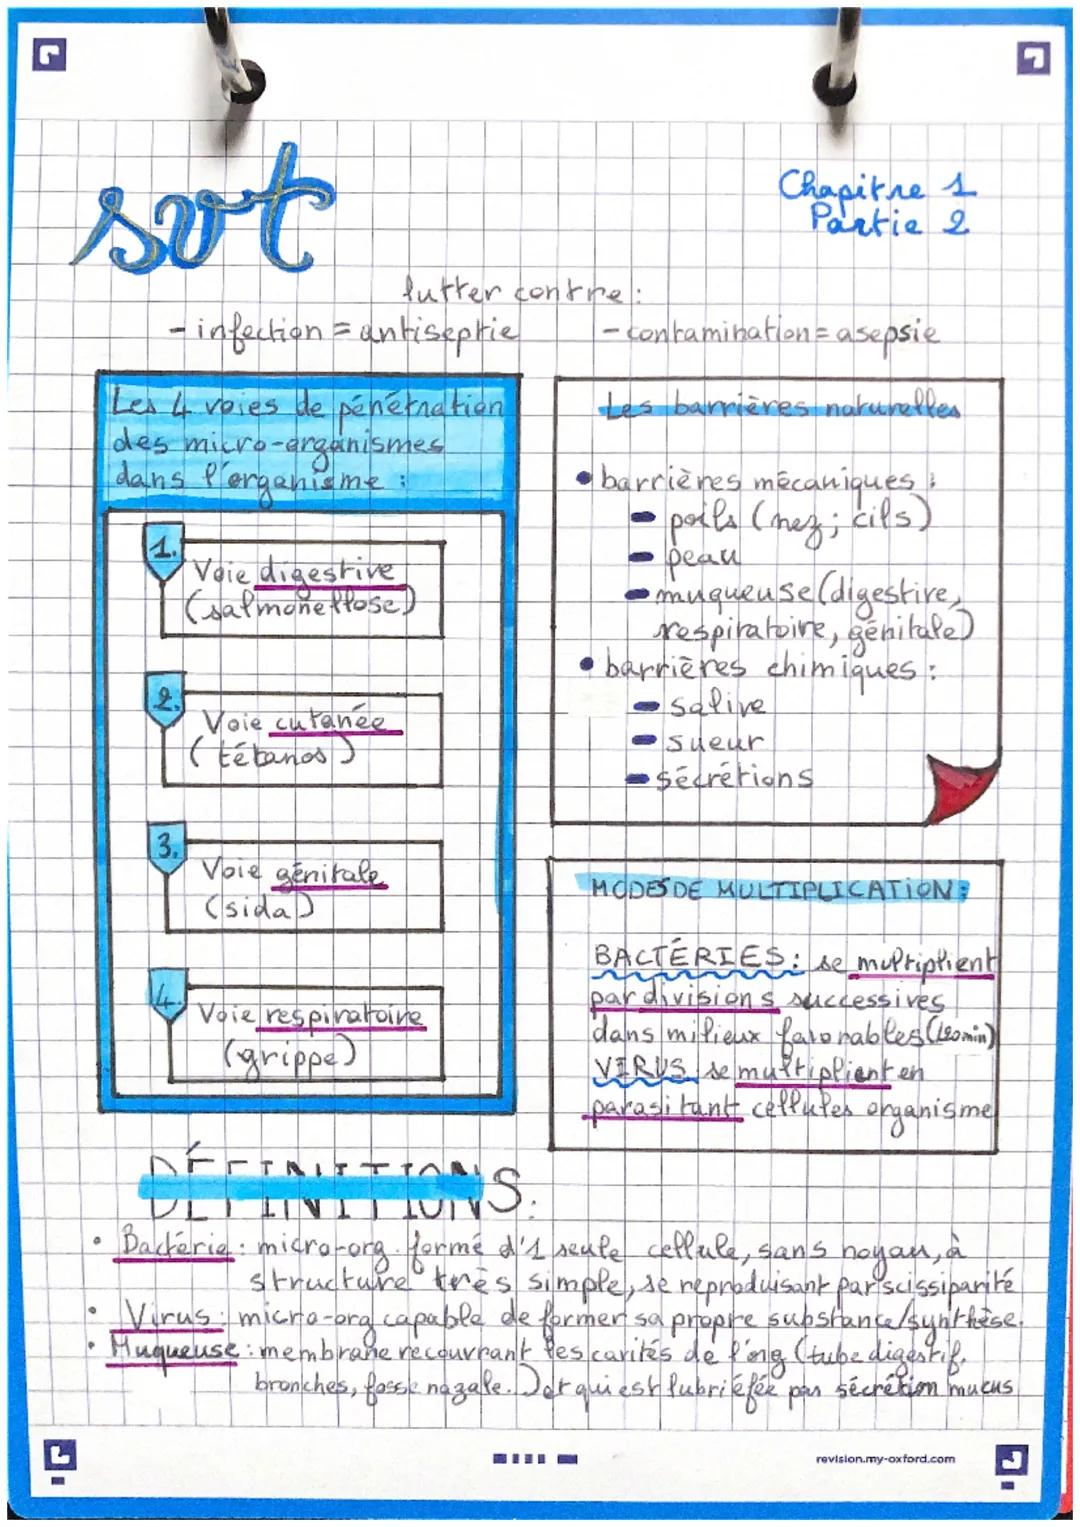 svt
Chapitre 1
Partie 2
lutter contre :
- infection = antiseptie
- contamination = asepsie
Les 4 voies de pénétration
des micro-organismes
dans l'organisme :
1.
Voie digestive
(salmonellose)
2.
Voie cutanée
(tétanos)
3.
Voie génitale
(sida)
4.
Voie respiratoire
(grippe)
Les barrières naturelles
• barrières mécaniques :
- poils (nez ; cils)
- peau
- muqueuse (digestive,
respiratoire, génitale)
• barrières chimiques :
- salive
- sueur
- sécrétions
MODES DE MULTIPLICATION :
BACTÉRIES : se multiplient
par divisions successives
dans milieux favorables
VIRUS se multiplient en
parasitant cellules organisme
DÉFINITIONS :
• Bactérie : micro-org. formé d'1 seule cellule, sans noyau, à
structure très simple, se reproduisant par scissiparité
• Virus : micro-org capable de former sa propre substance/synthèse.
• Muqueuse : membrane recouvrant les cavités de l'org (tube digestif,
bronches, fosse nazale..) et qui est lubriéfée par sécrétion mucus
revision.my-oxford.com